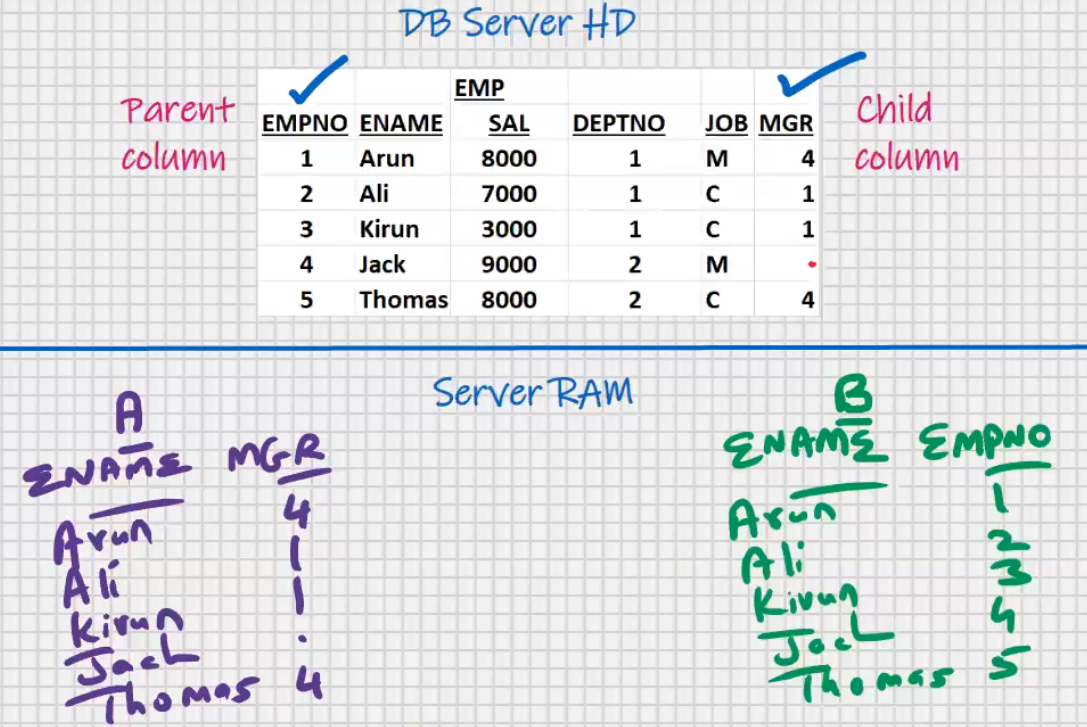 DB Server HD
EMP
Parent column
EMPNO ENAME SAL DEPTNO JOB MGR
Child column
1 Arun 8000 1 M 4
2 Ali 7000 1 C 1
3 Kirun 3000 1 C 1
4 Jack 9000 2 M .
5 Thomas 8000 2 C 4
Server RAM
A
ENAME MGR
Arun 4
Ali 1
Kirun 1
Jack .
Thomas 4
B
ENAME EMPNO
Arun 1
Ali 2
Kirun 3
Jack 4
Thomas 5